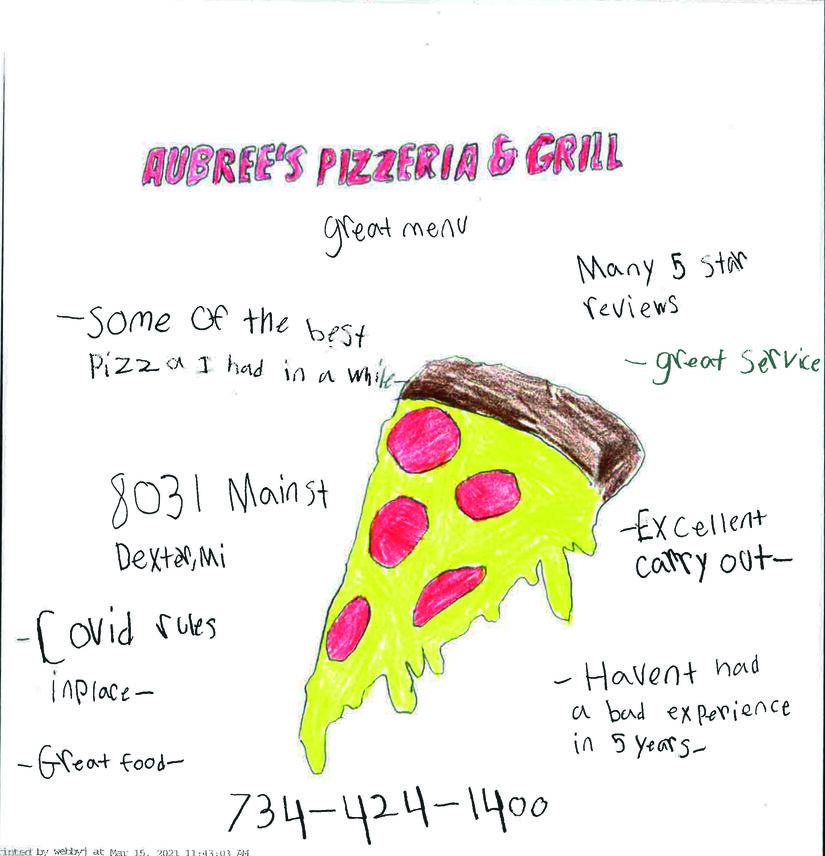 AUBREE'S PIZZERIA & GRILL
great menu
Many 5 star
reviews
-Some of the best
Pizza I had in a while-
-great service
8031 Main st
Dexter, Mi
-Excellent
carry out-
-Covid rules
inplace-
-Havent had
a bad experience
in 5 years-
-Great food-
734-424-1400
rinted by webbyj at Mar 15, 2021 11:43:03 AM